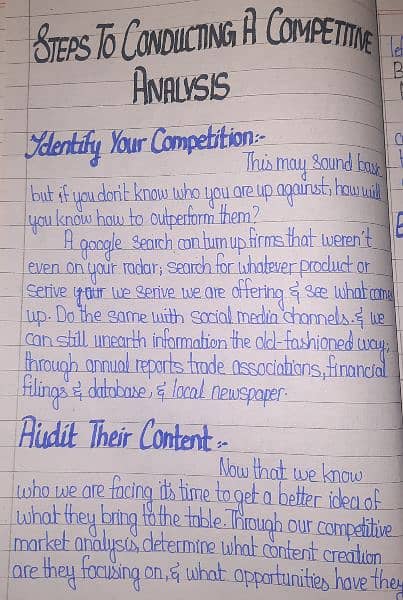 STEPS TO CONDUCTING A COMPETITIVE
ANALYSIS
Identify Your Competition:-
This may sound basic
but if you don't know who you are up against, how will
you know how to outperform them?
A google search can turn up firms that weren't
even on your radar, search for whatever product or
serive your we serive we are offering & see what come
up. Do the same with social media channels. & we
can still unearth information the old-fashioned way,
through annual reports trade associations, financial
filings & database, & local newspaper.
Audit Their Content:-
Now that we know
who we are facing its time to get a better idea of
what they bring to the table. Through our competitive
market analysis, determine what content creation
are they focusing on, & what opportunities have they